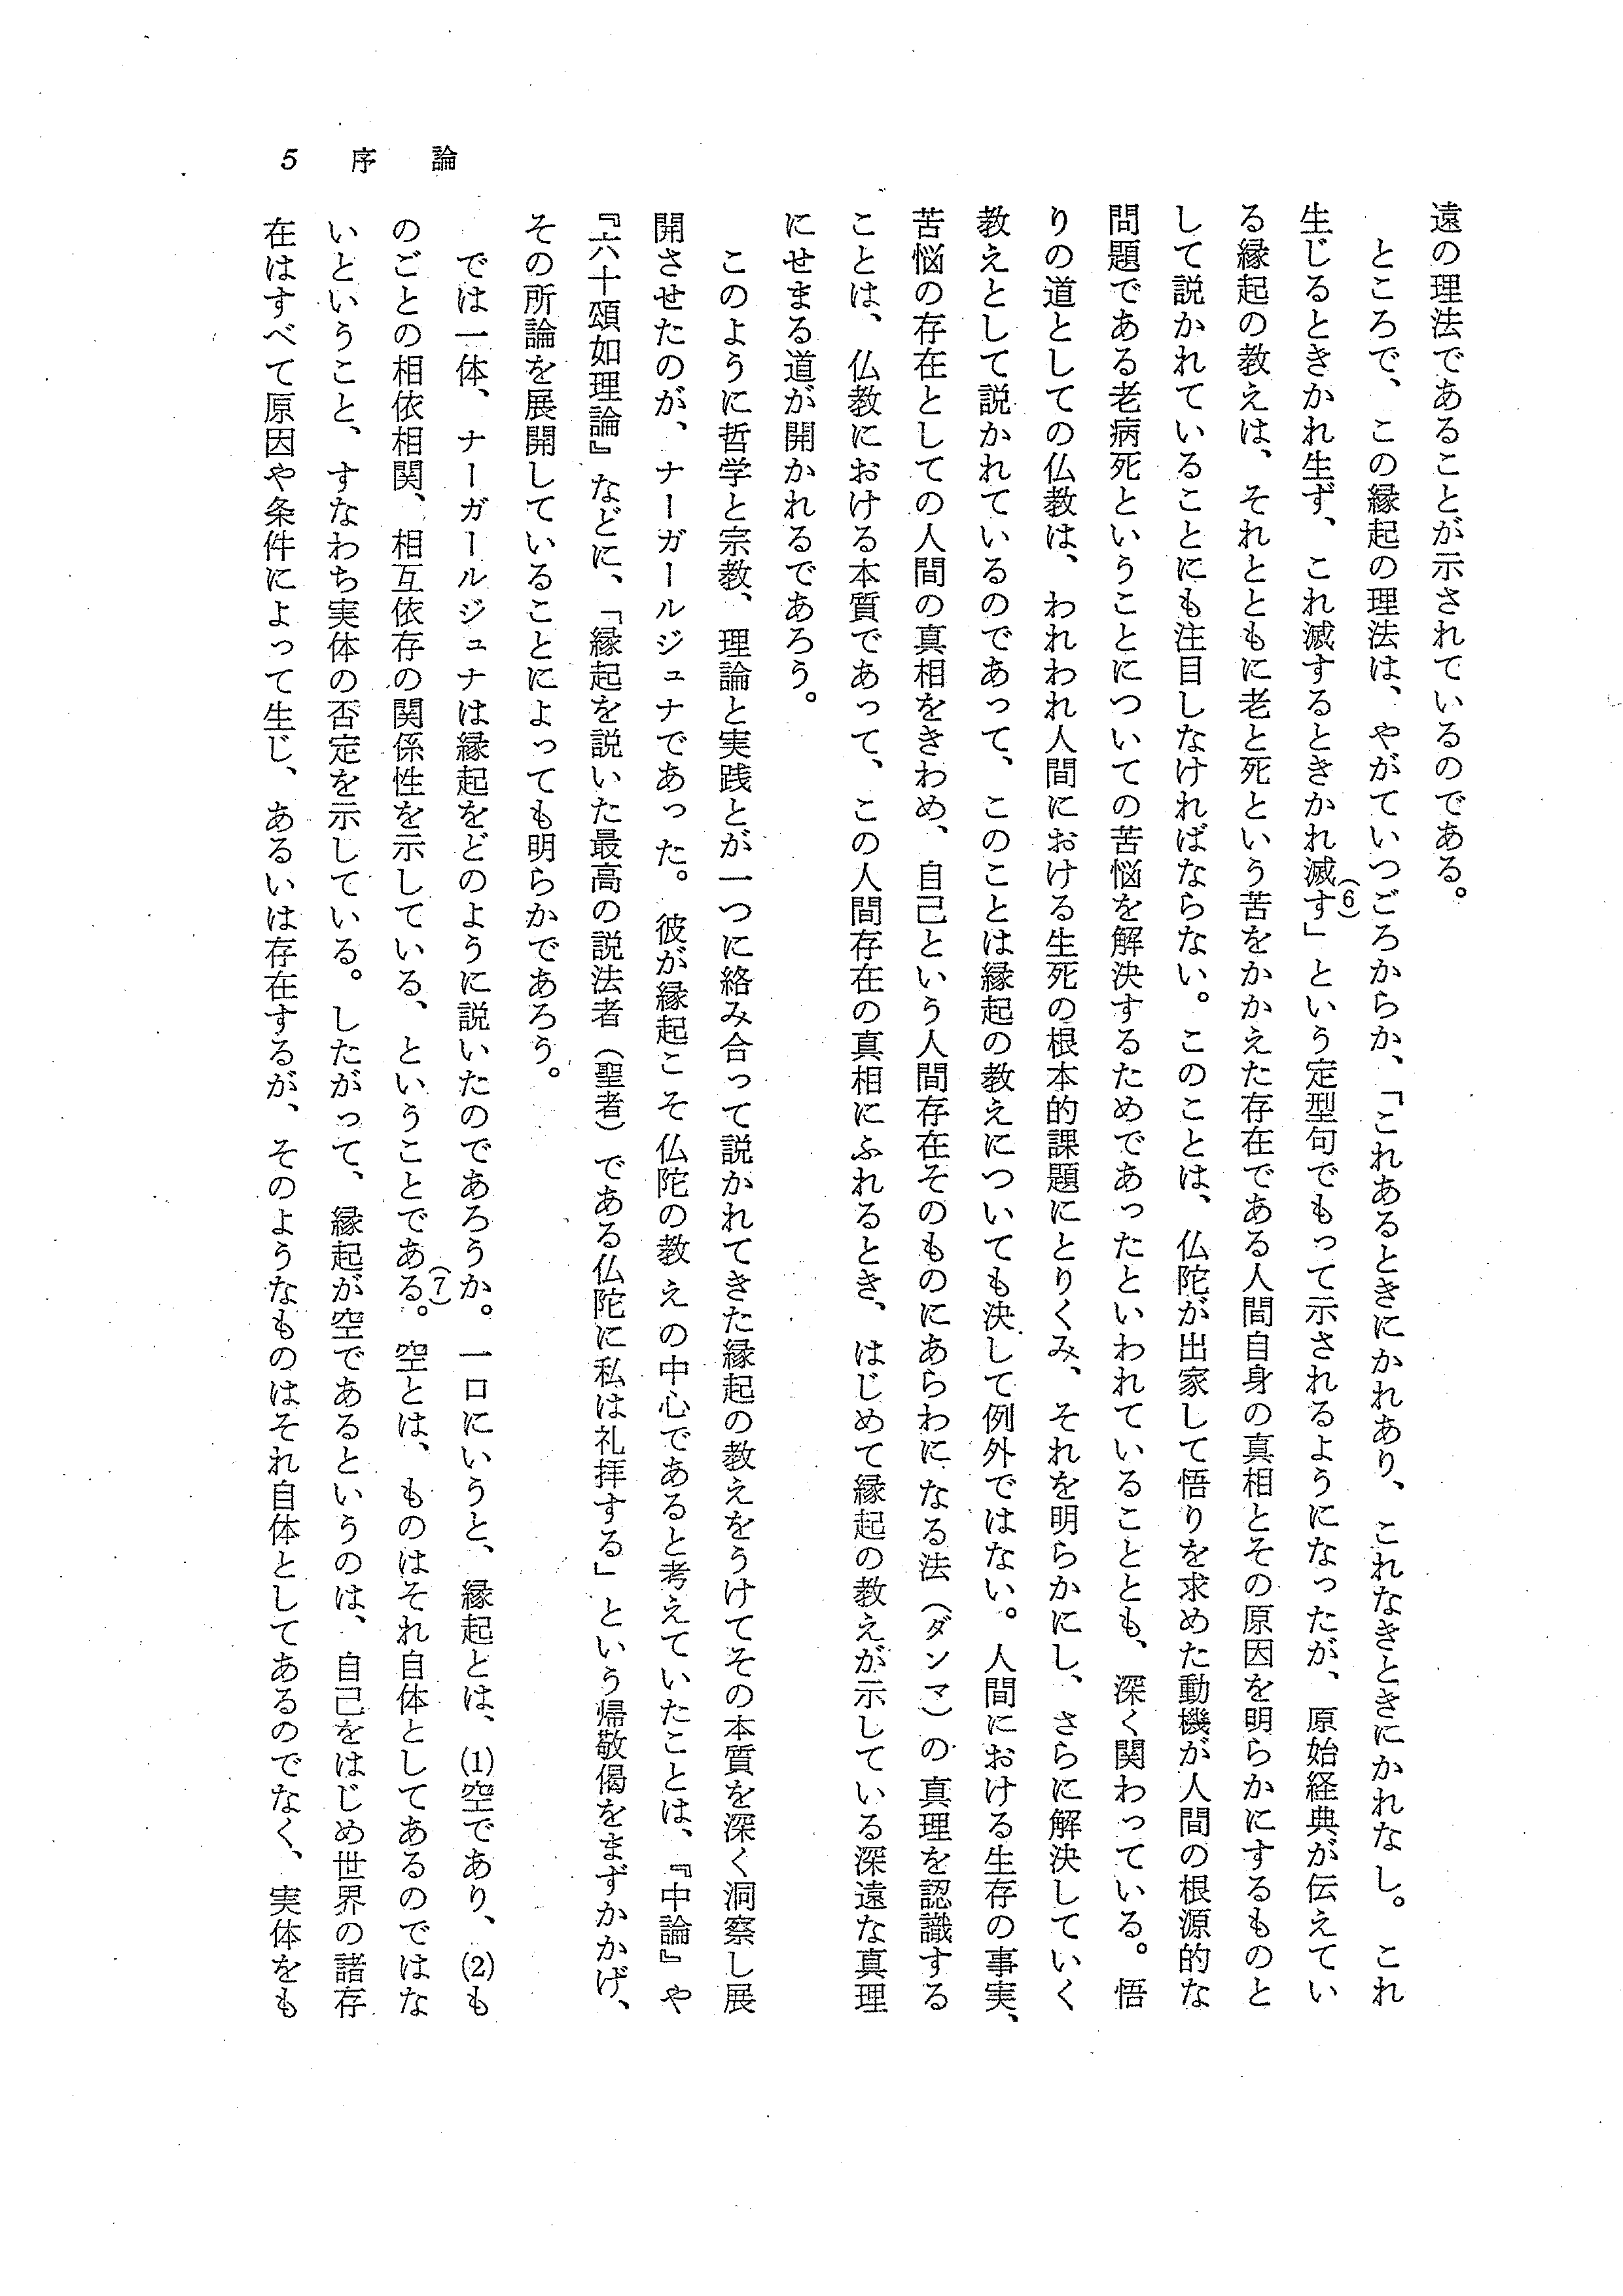 5 序論
遠の理法であることが示されているのである。
ところで、この縁起の理法は、やがていつごろからか、「これあるときにかれあり、これなきときにかれなし。これ
生じるときかれ生ず、これ滅するときかれ滅す」(6)という定型句でもって示されるようになったが、原始経典が伝えてい
る縁起の教えは、それとともに老と死という苦をかかえた存在である人間自身の真相とその原因を明らかにするものと
して説かれていることにも注目しなければならない。このことは、仏陀が出家して悟りを求めた動機が人間の根源的な
問題である老病死ということについての苦悩を解決するためであったといわれていることとも、深く関わっている。悟
りの道としての仏教は、われわれ人間における生死の根本的課題にとりくみ、それを明らかにし、さらに解決していく
教えとして説かれているのであって、このことは縁起の教えについても決して例外ではない。人間における生存の事実、
苦悩の存在としての人間の真相をきわめ、自己という人間存在そのものにあらわになる法（ダンマ）の真理を認識する
ことは、仏教における本質であって、この人間存在の真相にふれるとき、はじめて縁起の教えが示している深遠な真理
にせまる道が開かれるであろう。
このように哲学と宗教、理論と実践とが一つに絡み合って説かれてきた縁起の教えをうけてその本質を深く洞察し展
開させたのが、ナーガールジュナであった。彼が縁起こそ仏陀の教えの中心であると考えていたことは、『中論』や
『六十頌如理論』などに、「縁起を説いた最高の説法者（聖者）である仏陀に私は礼拝する」という帰敬偈をまずかかげ、
その所論を展開していることによっても明らかであろう。
では一体、ナーガールジュナは縁起をどのように説いたのであろうか。一口にいうと、縁起とは、(1)空であり、(2)も
のごとの相依相関、相互依存の関係性を示している、ということである(7)。空とは、ものはそれ自体としてあるのではな
いということ、すなわち実体の否定を示している。したがって、縁起が空であるというのは、自己をはじめ世界の諸存
在はすべて原因や条件によって生じ、あるいは存在するが、そのようなものはそれ自体としてあるのでなく、実体をも